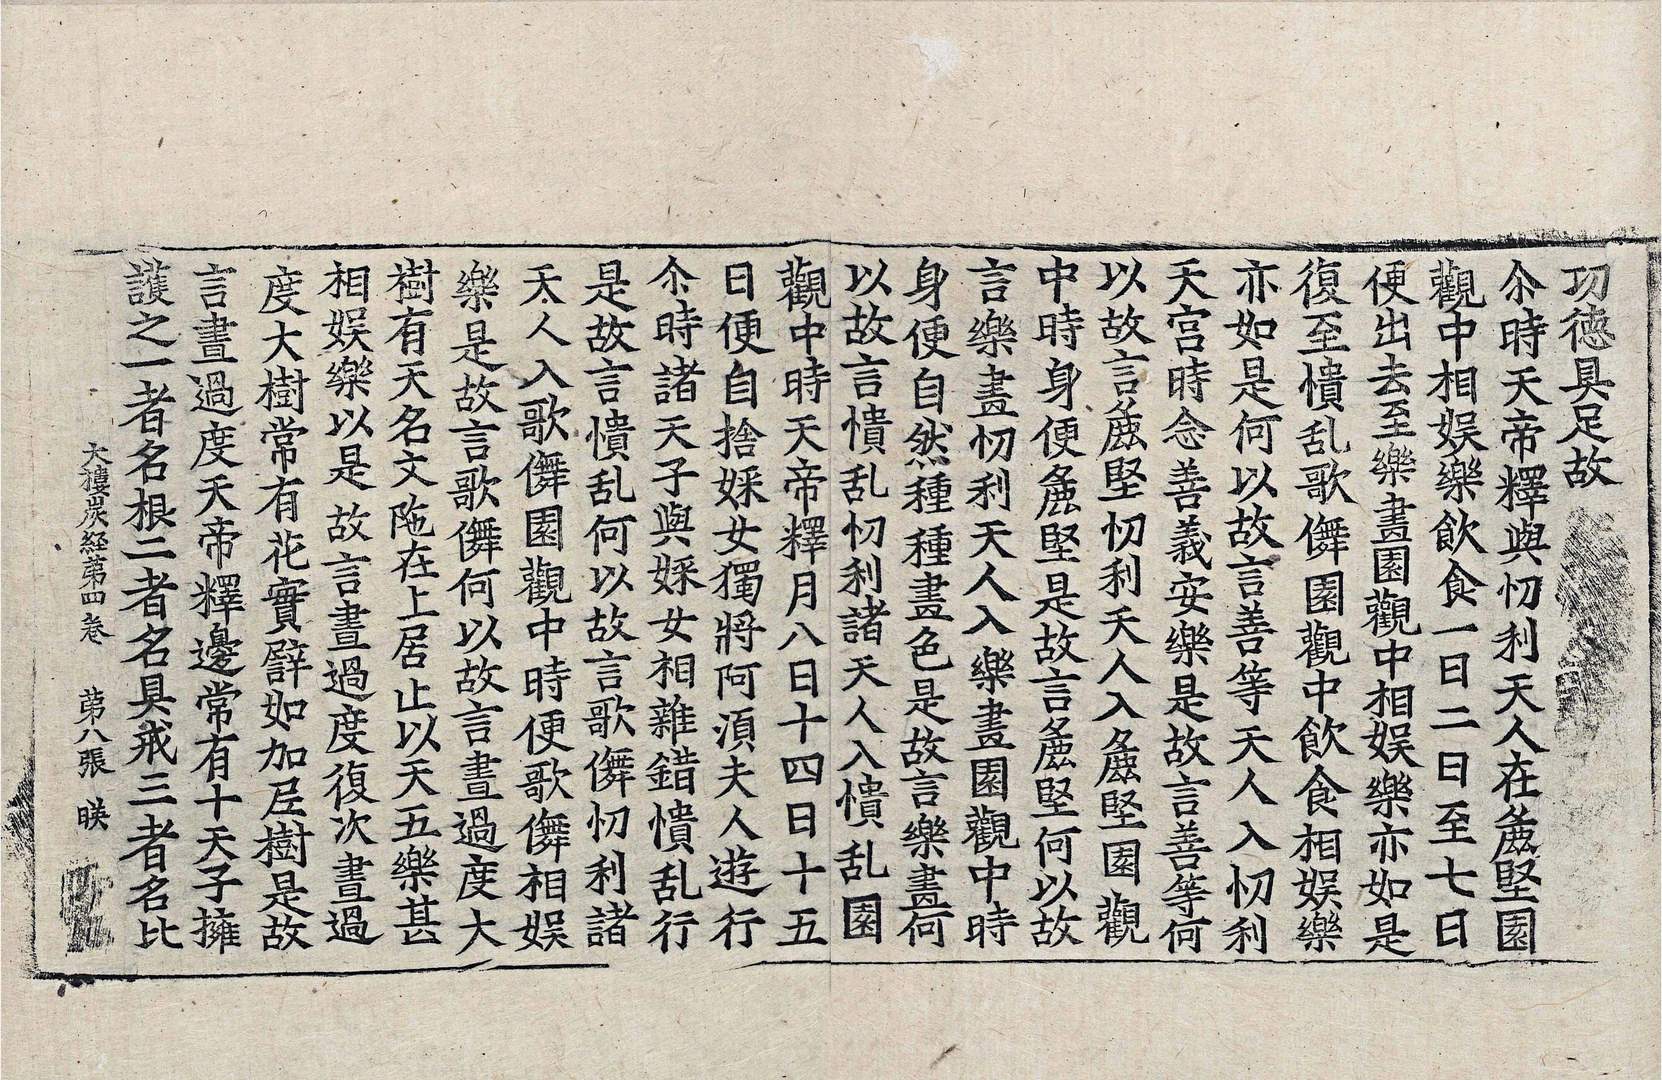 功德具足故
尒時天帝釋與忉利天人在麁堅園
觀中相娛樂飲食一日二日至七日
便出去至樂畫園觀中相娛樂亦如是
復至憒乱歌儛園觀中飲食相娛樂
亦如是何以故言善等天人入忉利
天宮時念善義安樂是故言善等何
以故言麁堅忉利天人入麁堅園觀
中時身便麁堅是故言麁堅何以故
言樂畫忉利天人入樂畫園觀中時
身便自然種種畫色是故言樂畫何
以故言憒乱忉利諸天人入憒乱園
觀中時天帝釋月八日十四日十五
日便自捨婇女獨將阿湏夫人遊行
尒時諸天子與婇女相雜錯憒乱行
是故言憒乱何以故言歌儛忉利諸
天人入歌儛園觀中時便歌儛相娛
樂是故言歌儛何以故言晝過度大
樹有天名文陁在上居止以天五樂甚
相娛樂以是故言晝過度復次晝過
度大樹常有花實譬如加𡰱樹是故
言晝過度天帝釋邊常有十天子擁
護之一者名根二者名具戒三者名比
大樓炭経苐四卷　苐八張　映